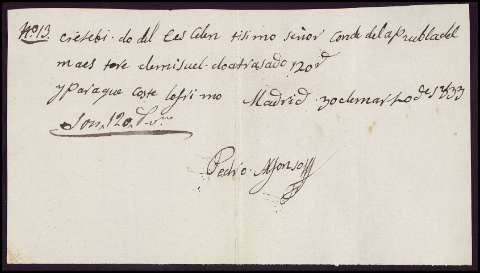 No. 13. eresebi. do del Ees Celen tisimo señor Conde dela puebladel
maes tore demisuel. doatrasado 120 r
yparaque coste lofirmo Madrid 30 demarzo de 1833
Son, 120. r on
Pedro Alfonso